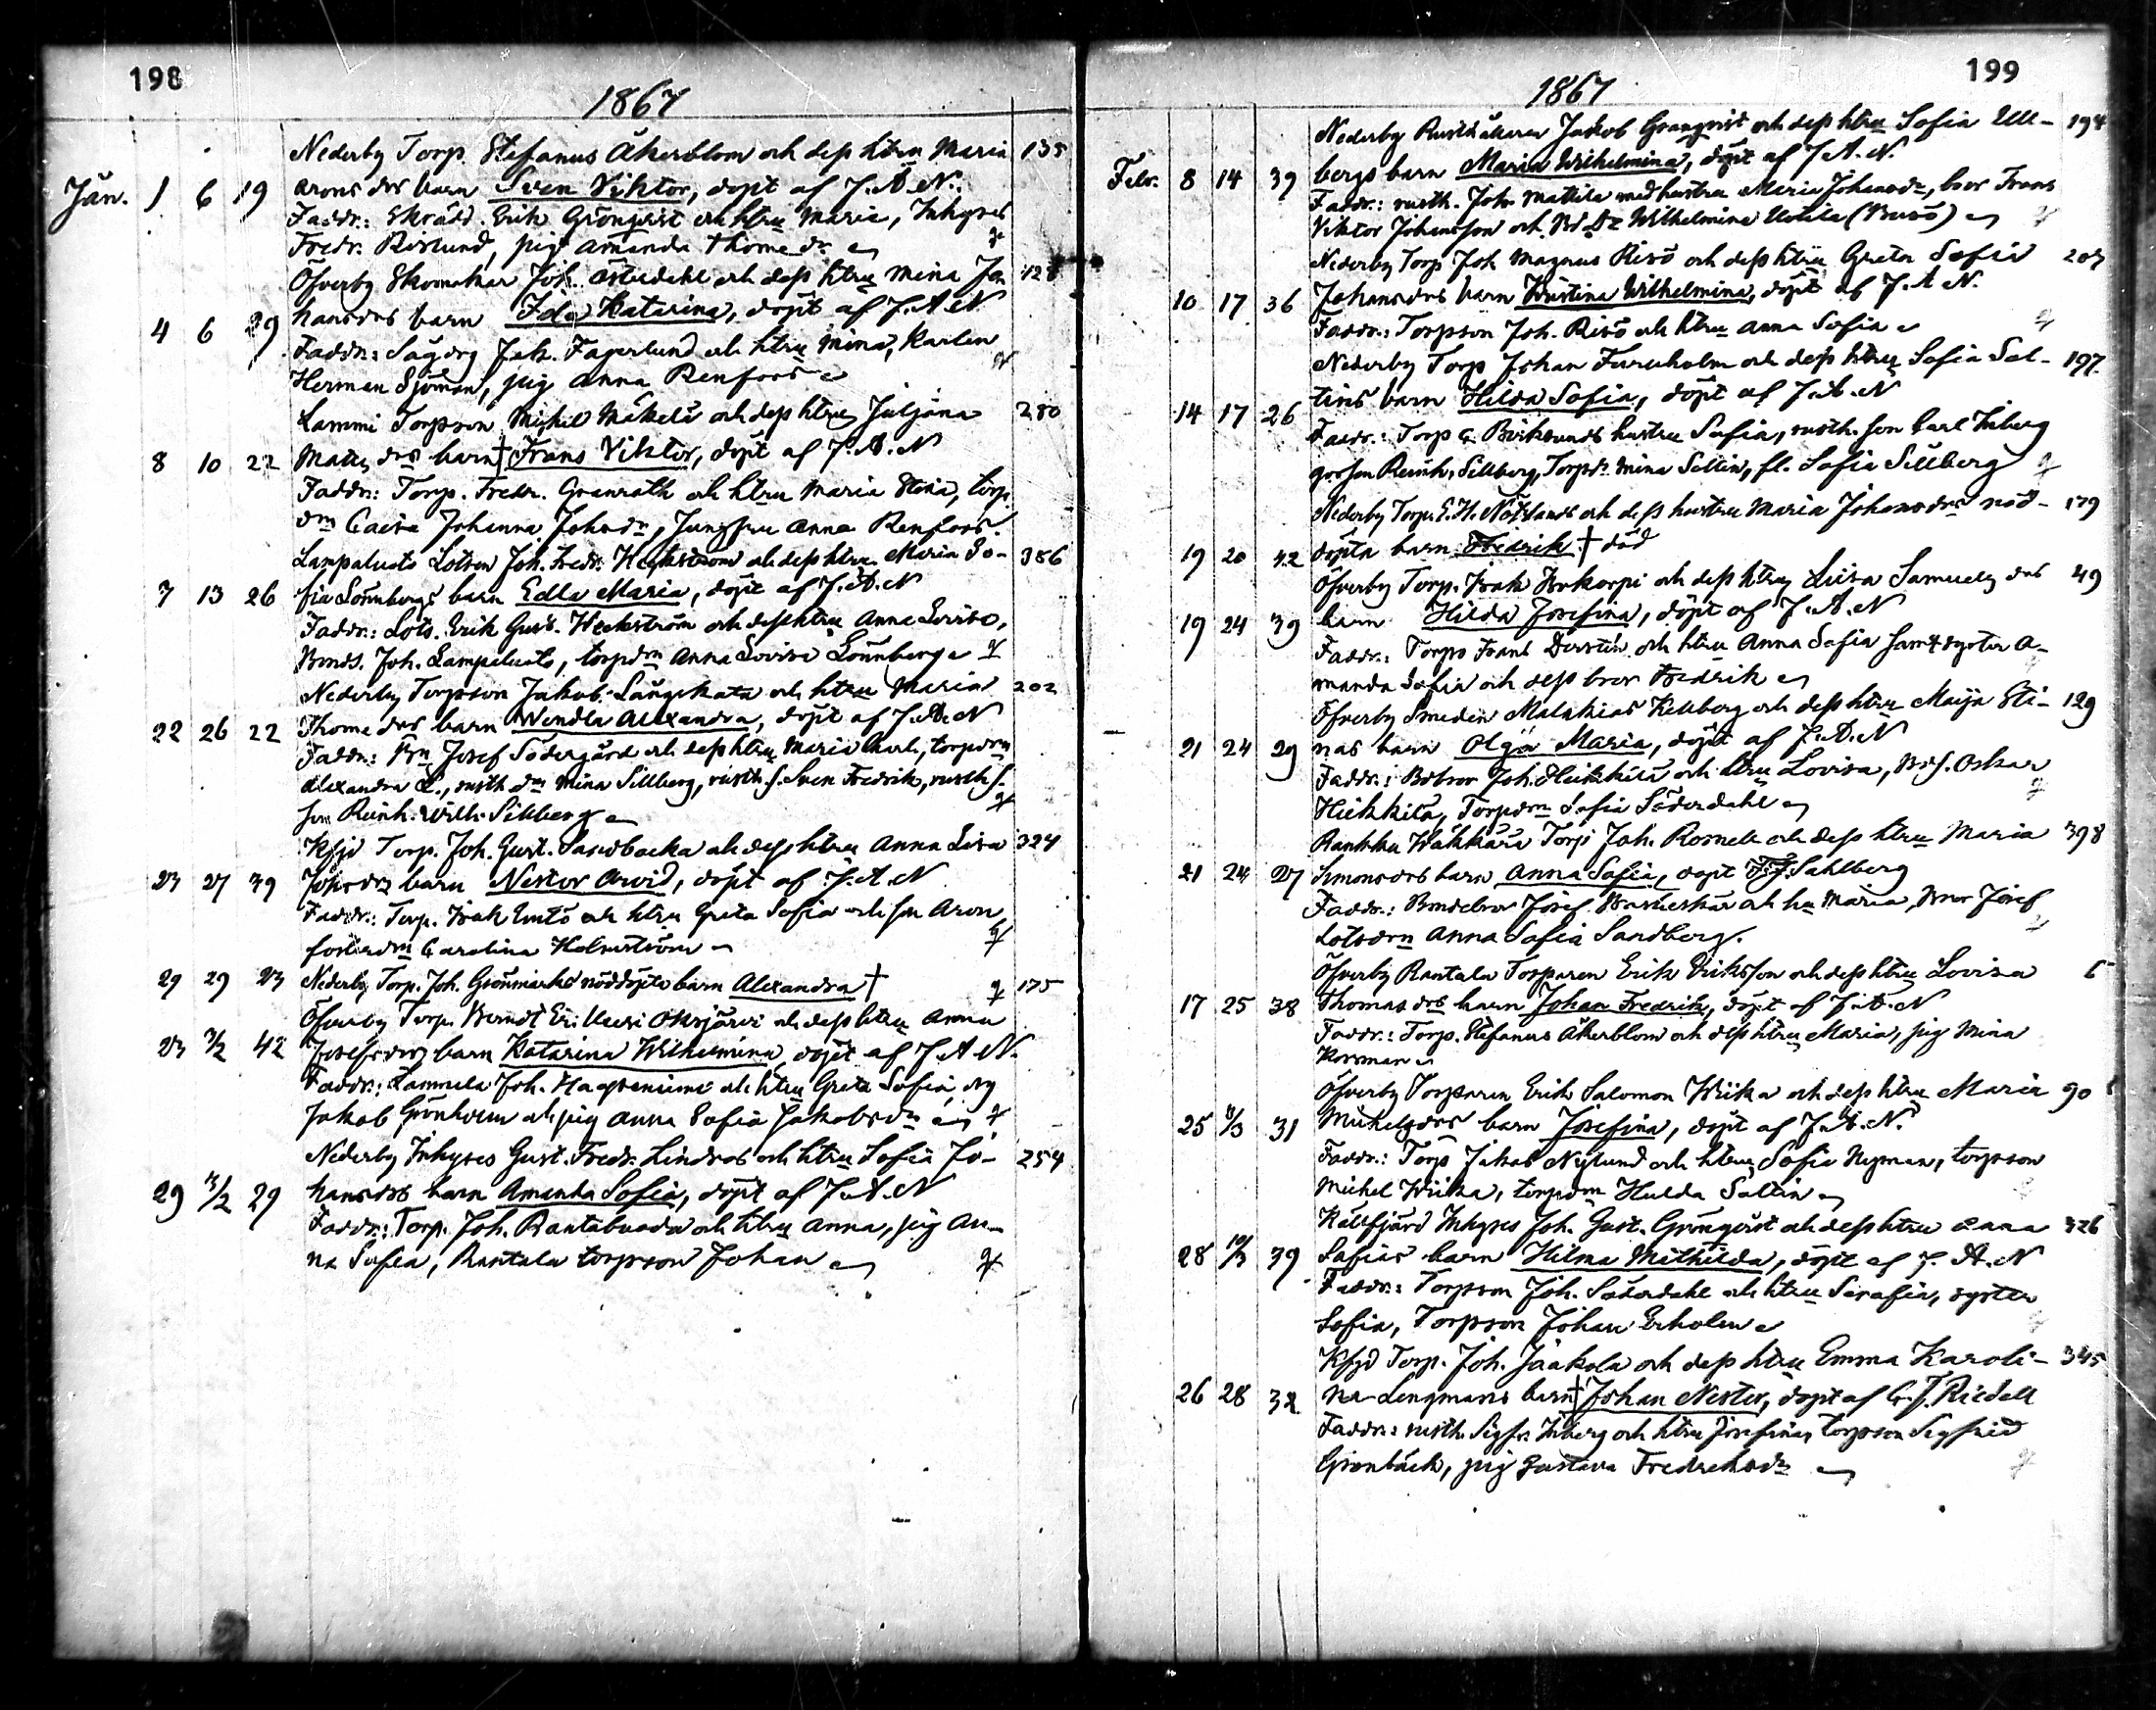 198
1867
Nederby Torp. Stefanus Åkerblom och dess htru Maria 135
Jan. 1 6 19 Arons drs barn Sven Viktor, döpt af J. A. N.
Faddr.: Skrädd. Erik Grönqvist och htru Maria, Inhyses
Fredr. Rislund, pig Amanda Thomedr
Öfverby Skomakar Joh. Österdahl och dess htru Mina Jo 128
4 6 29 hansdrs barn Ida Katarina, döpt af J. A. N
Faddr.: Sågdrg Jak. Fagerlund och htru Mina, Karlen
Herman Sjöman, pig Anna Renfors
Lammi Torpson Michel Mäkelä och dess htru Juljana 280
8 10 22 Matts drs barn † Frans Viktor, döpt af J. A. N
Faddr.: Torp. Fredr. Granroth och htru Maria Stina, torp.
drn Caisa Johanna Johsdr, Jungfru Anna Renfors.
Lampaluoto Lotsen Joh. Fredr. Heckström och dess htru Maria So- 386
7 13 26 fia Lönnbergs barn Edla Maria, döpt af J. A. N
Faddr.: Lots. Erik Gust. Heckström och dess htru Anna Lovisa,
Bonds. Joh. Lampaluoto, torpdrn Anna Lovisa Lönnberg
Nederby Torpson Jakob Långskata och htru Maria 202
22 26 22 Thome drs barn Wendla Alexandra, döpt af J. A. N
Faddr.: Bn Josef Södergård och dess htru Maria Charl., torpdrn
Alexandra L., rusth. dr Mina Sillberg, rusth. s. Sven Fredrik, rusth. s.
son Reinh. Wilh. Sillberg
Kfjd Torp. Joh. Gust. Sandbacka och dess htru Anna Lisa 324
23 27 39 Johsdrs barn Nestor Arvid, döpt af J. A. N
Faddr.: Torp. Isak Emtö och htru Greta Sofia och son Aron,
fosterdrn Carolina Holmström
29 29 23 Nederby Torp. Joh. Grönmarks nöddöpta barn Alexandra † 175
Öfverby Torp. Berndt Er. Uusi Oksjärvi och dess htru Anna
23 3/2 42 Josefsdrs barn Katarina Wilhelmina, döpt af J. A. N.
Faddr.: Lammela Joh. Haapaniemi och htru Greta Sofia, drg
Jakob Grönholm och pig Anna Sofia Jakobsdr
Nederby Inhyses Gust. Fredr. Lindros och htru Sofia Jo- 254
29 /2 29 hansdrs barn Amanda Sofia, döpt af J. A. N
Faddr.: Torp. Joh. Rantabuoda och htru Anna, pig An-
na Sofia, Rantala torpson Johan
199
1867
Nederby Rusthållaren Jakob Granqvist och dess htru Sofia Ull- 194
Febr. 8 14 39 bergs barn Maria Wilhelmina, döpt af J. A. N.
Faddr.: rusth. Joh. Mattila med hustru Maria Johansdr, bror Frans
Viktor Johansson och Bd Dr Wilhelmina Uotila (Busö)
Nederby Torp Joh Magnus Risö och dess htru Greta Sofia 207
10 17 36 Johansdrs barn Kristina Wilhelmina, döpt af J. A. N.
Faddr.: Torpson Joh. Risö och htru Anna Sofia
Nederby Torp Johan Furuholm och dess htru Sofia Sal- 197
14 17 26 tins barn Hilda Sofia, döpt af J. A. N
Faddr.: Torp G. Birklunds hustru Sofia, rusth. son Carl Inberg
gosson Reinh. Sillberg, Torpdr. Mina Saltin, fl. Sofia Sillberg
Nederby Torp. E. H. Nötslands och dess hustru Maria Johansdrs nöd- 179
19 20 42 döpta barn Fredrik † död
Öfverby Torp. Isak Korkorpi och dess htru Lisa Samuels drs 49
19 24 39 barn Hilda Josefina, döpt af J. A. N
Faddr.: Torps Frans Dersten och htru Anna Sofia samt syster A-
manda Sofia och dess bror Fredrik
Öfverby Smeden Malakias Kellberg och dess htru Maija Sti- 129
21 24 29 nas barn Olga Maria, döpt af J. A. N
Faddr.: Bdsbror Joh. Heikkilä och htru Lovisa, Bds. Oskar
Heikkilä, Torpdrn Sofia Söderdahl
Rankku Wäkkärä Torp Joh. Rosnell och dess htru Maria 398
21 24 27 Simonsdrs barn Anna Sofia, döpt F. F. Sahlberg
Faddr.: Bondebror Josef och hu Maria, Bror Josef
Lotsdrn Anna Sofia Sandberg.
Öfverby Rantala Torparen Erik Eriksson och dess htru Lovisa 6
17 25 38 Thomas drs barn Johan Fredrik, döpt af J. A. N
Faddr.: Torp. Stefanus Åkerblom och dess htru Maria, pig Mina
Korsman
Öfverby Torparen Erik Salomon Wiika och dess htru Maria 90
25 /3 31 Michelsdrs barn Josefina, döpt af J. A. N.
Faddr.: Torp Jakob Nylund och htru Sofia Nyman, torpson
Michel Wiika, torpdrn Hulda Saltin
Kållfjärd Inhyses Joh. Gust. Grönqvist och dess htru Anna 326
28 10/3 39 Sofias barn Hilma Mathilda, döpt af J. A. N
Faddr.: Torpson Joh. Söderdahl och htru Serafia, syster
Sofia, Torpson Johan Erholm
Kfjd Torp. Joh. Jaakola och dess htru Emma Karoli- 345
26 28 32 na Lengmans barn † Johan Nestor, döpt af G. J. Riedell
Faddr.: rusth. Sigfr. Inberg och htru Josefina, torpson Sigfrid
Grönbäck, pig Gustava Fredriksdr